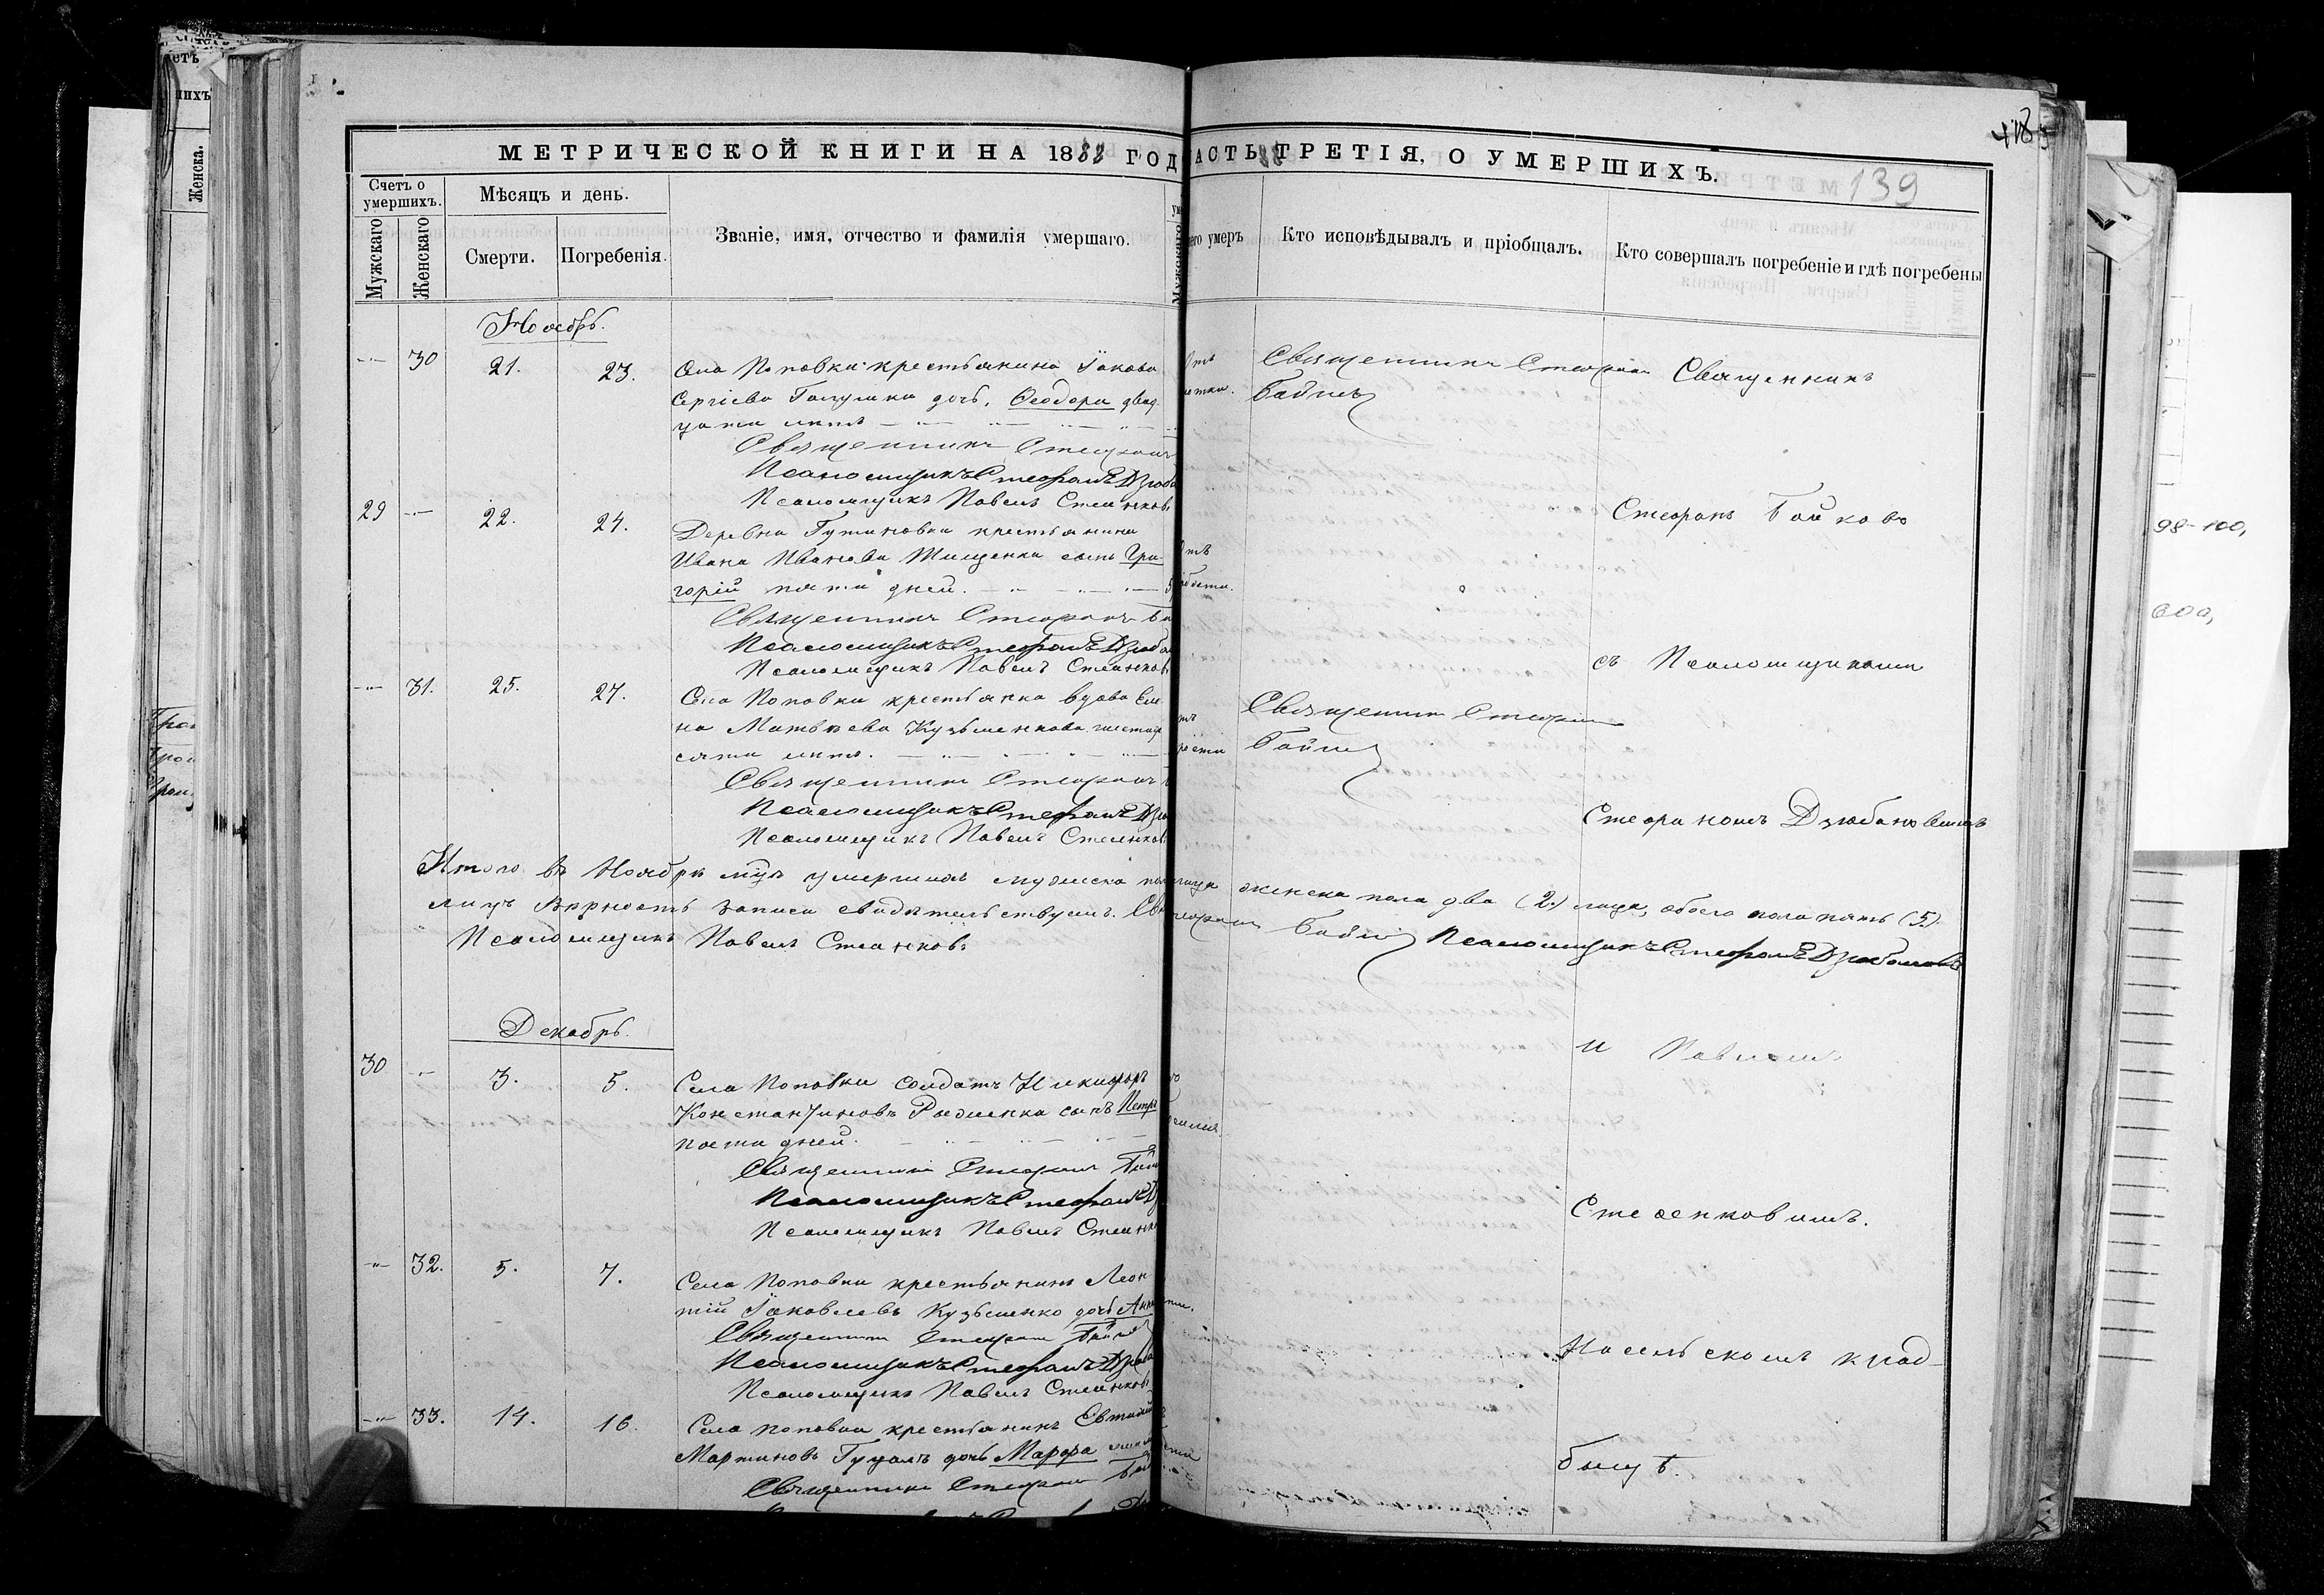 МЕТРИЧЕСКОЙ КНИГИ НА 1888 ГОД
АСТЬ ТРЕТІЯ, О УМЕРШИХЪ.
139
Счетъ о умершихъ.
Мужскаго
Женскаго
Мѣсяцъ и день.
Смерти.
Погребенія.
Званіе, имя, отчество и фамилія умершаго.
его умеръ
Кто исповѣдывалъ и пріобщалъ.
Кто совершалъ погребеніе и гдѣ погребены
Ноябрь.
30 21. 23. Села Поповки крестьянина Іакова
Сергіева дочь, Ѳеодора двад
цати лѣтъ
Священникъ Стефанъ
Псаломщикъ Стефанъ Дзюба
Псаломщикъ Павелъ Стеенковъ
Священникъ Стефанъ
Бойко
Священникъ
29 22. 24. Деревни Гутиновки крестьянина
Ивана Иванова Тищенка сынъ Гри-
горій пяти дней.
Священникъ Стефанъ Бо
Псаломщикъ Стефанъ Дзюба
Псаломщикъ Павелъ Стеенковъ
Стефанъ Бойково
31. 25. 27. Села Поповки крестьянка вдова Еле
на Матвѣева Кузьменкова шестиде
сяти лѣтъ.
Священникъ Стефанъ
Псаломщикъ Стефанъ Дзю
Псаломщикъ Павелъ Стеенковъ
Священникъ Стефанъ
Бойко
съ Псаломщиками
Стефаномъ Дзюбановымъ
Итого въ Ноябрѣ умершихъ мужеска пол женска пола два (2) лица, обоего пола пять (5).
лицъ Вѣрность записи свидѣтельствуемъ. Св Стефанъ Бойко Псаломщикъ Стефанъ Дзюбановъ
Псаломщикъ Павелъ Стеенковъ
Декабрь.
30 3. 5. Села Поповки солдатъ Никифоръ
Константиновъ сынъ Петръ
пяти дней.
Священникъ Стефанъ Бой
Псаломщикъ Стефанъ Д
Псаломщикъ Павелъ Стеенко
и Павломъ
Стеенковымъ.
32. 5. 7. Села Поповки крестьянинъ Леон
тій Іаковлевъ Кузьменко дочь Анна
Священникъ Стефанъ Бойко
Псаломщикъ Стефанъ Дзюба
Псаломщикъ Павелъ Стеенковъ
На сельскомъ клад-
33. 14. 16. Села Поповки крестьянинъ Евтихій
Мартиновъ Гуцалъ дочь Марфа
Священникъ Стефанъ Бой
бищѣ.
98-100,
600,